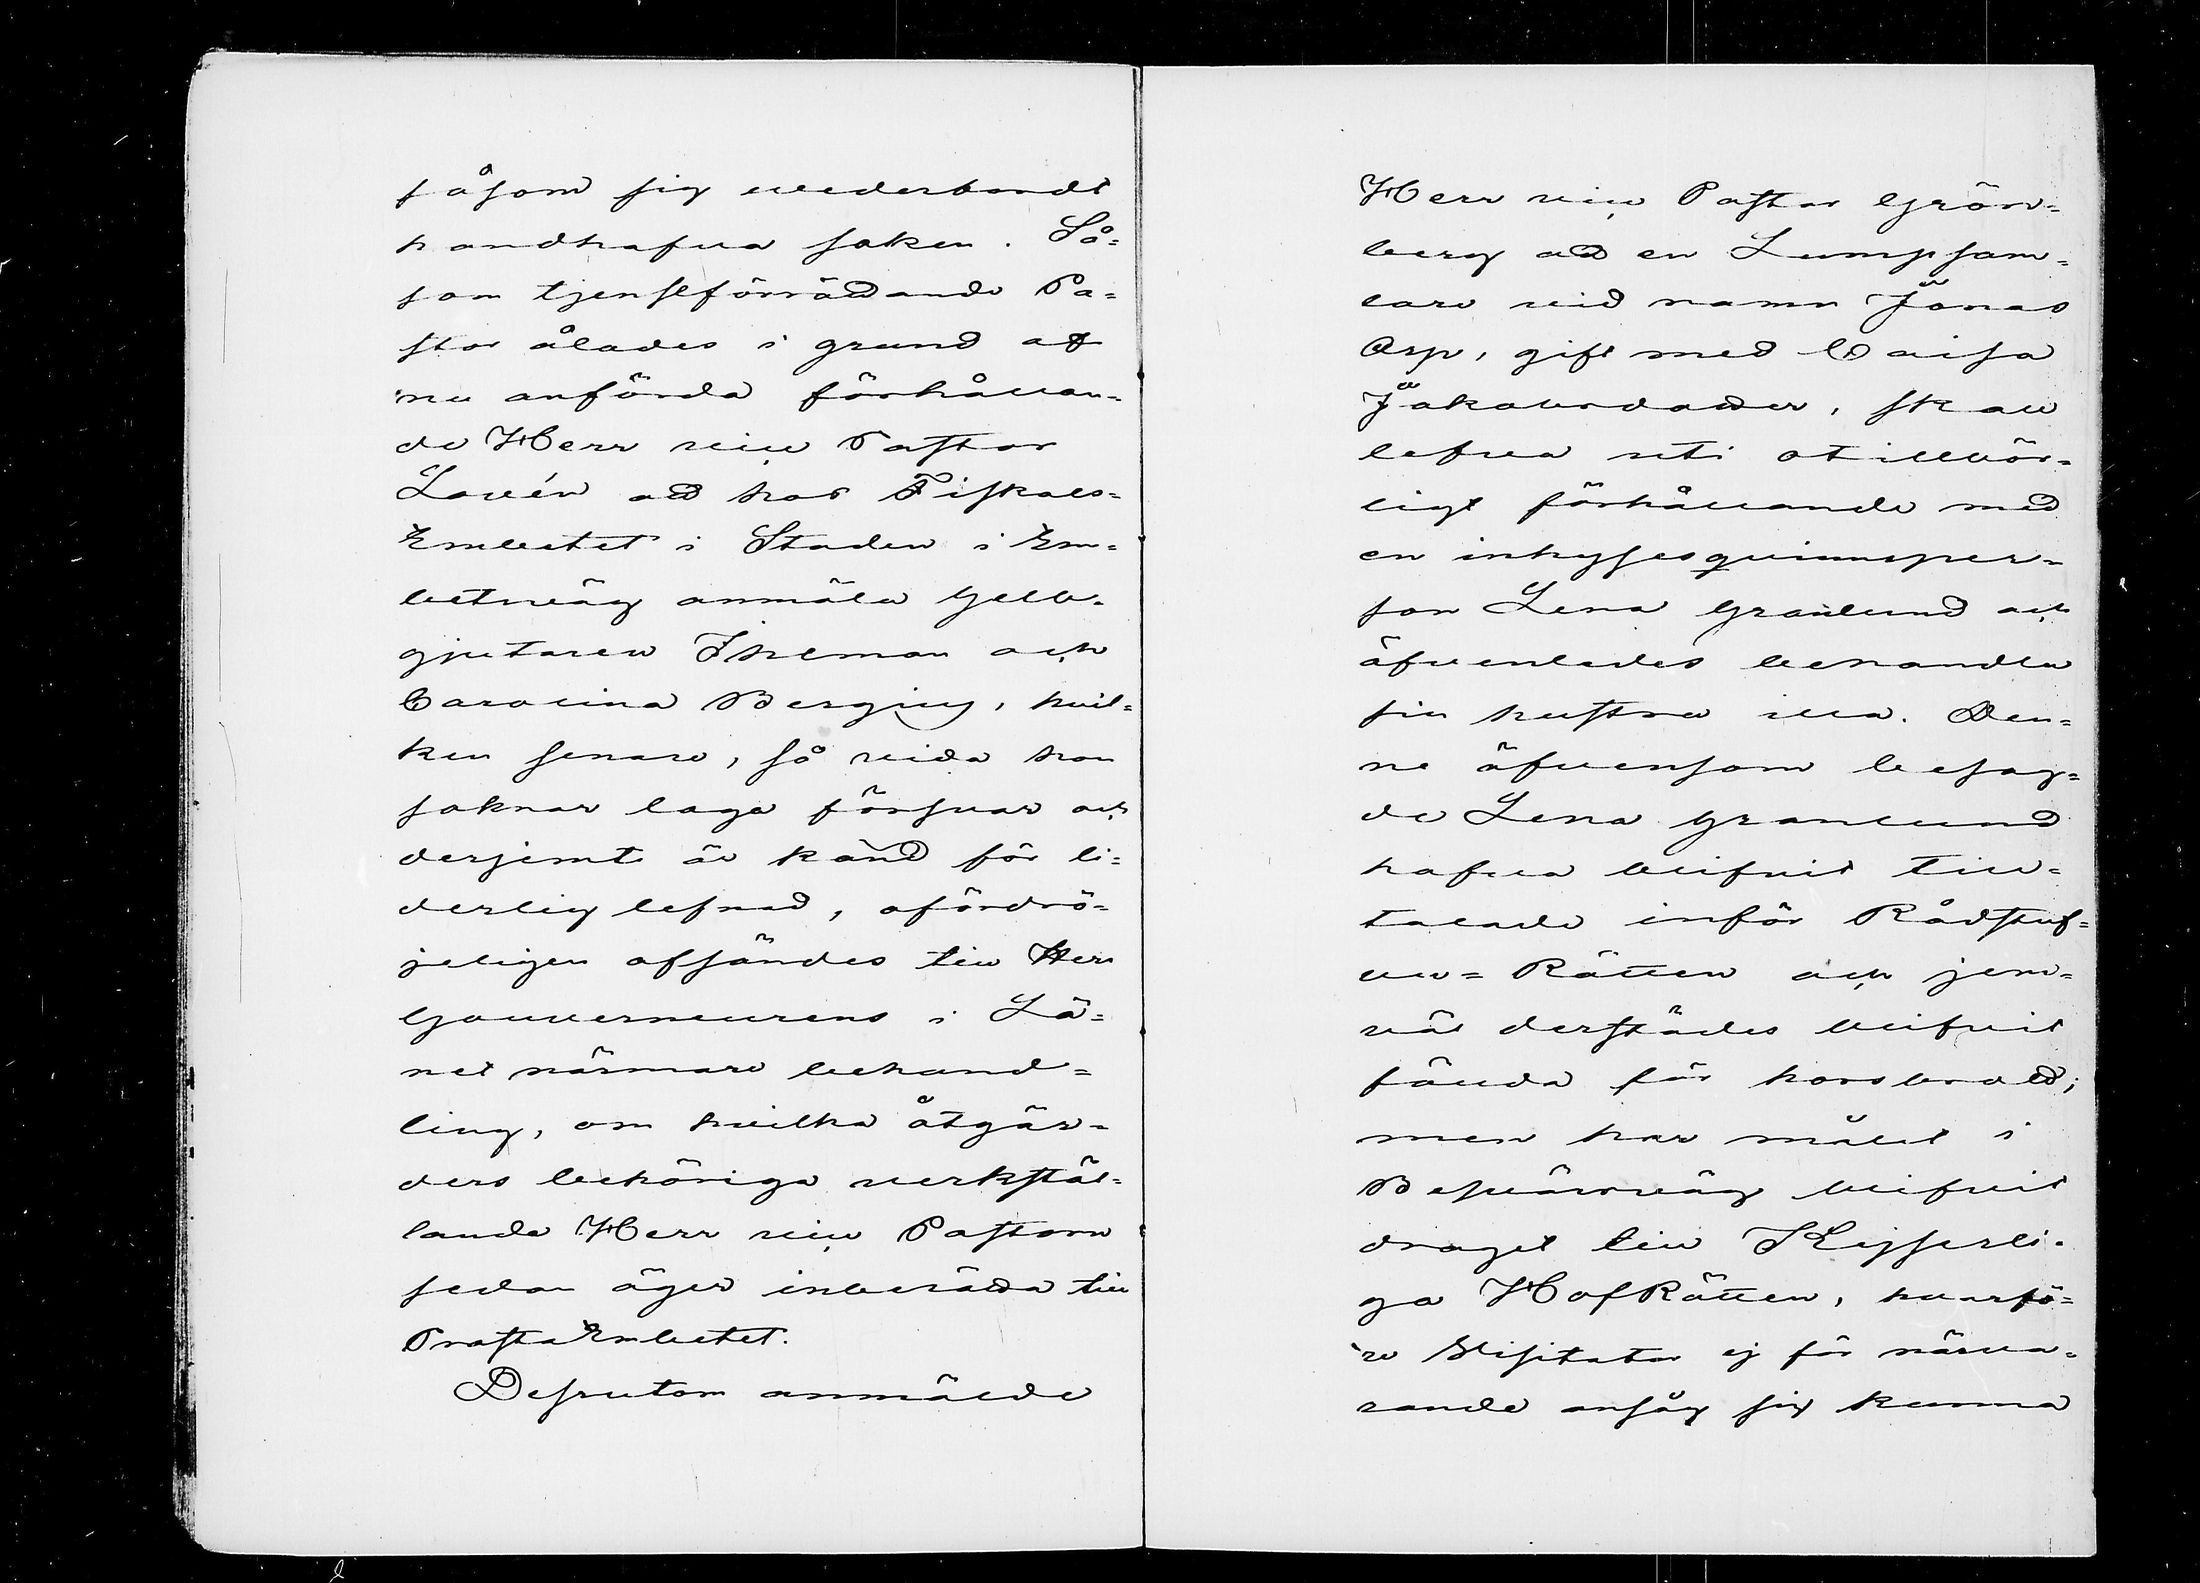 såsom sig wederbordt
handhafva saken. Så-
som tjenstförrättande Pa-
stor ålades i grund af
nu anförda förhållan-
de Herr vice Pastor
Lovén att hos Fiskals-
Embetet i Staden i Em-
betsväg anmäla Gelb-
gjutaren Ihreman och
Carolina Bergius, hvil-
ken senare, så vida hon
saknar laga försvar och
derjemte är känd för li-
derlig lefnad, ofördrö-
jeligen afsändes till Herr
Gouverneurens i Lä-
net närmare behand-
ling, om hvilka åtgär-
ders behöriga verkstäl-
lande Herr vice Pastorn
sedan äger inberätta till
ProstaEmbetet.
Dessutom anmälde
Herr vice Pastor Grön-
berg att en Lumpsam-
lare vid namn Jonas
Asp, gift med Caisa
Jakobsdotter, skall
lefva uti otillbör-
ligt förhållande med
en inhyses qvinnsper-
son Lena Granlund och
äfvenledes behandla
sin hustru illa. Den-
ne äfvensom besag-
de Lena Granlund
hafva blifvit till-
talade inför Rådstuf-
vu-Rätten och jem-
väl derstädes blifvit
fällda för horsbrott;
men har målet i
Besvärsväg blifvit
draget till Kejserli-
ga HofRätten, hvarfö-
re Visitator ej för närva-
rande ansåg sig kunna